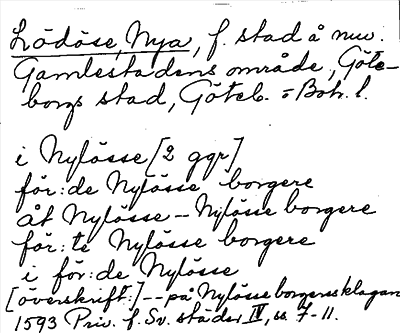 Lödöse, Nya, f. stad å nuv.
Gamlestadens område, Göte-
borgs stad, Göteb. o Boh. l.
i Nylösse [2 ggr]
för:de Nylösse borgere
åt Nylösse -- Nylösse borgere
för:te Nylösse borgere
i för:de Nylösse
[överskrift:] -- på Nylösse borgeres klagan
1593 Priv. f. Sv. städer IV, ss. 7-11.